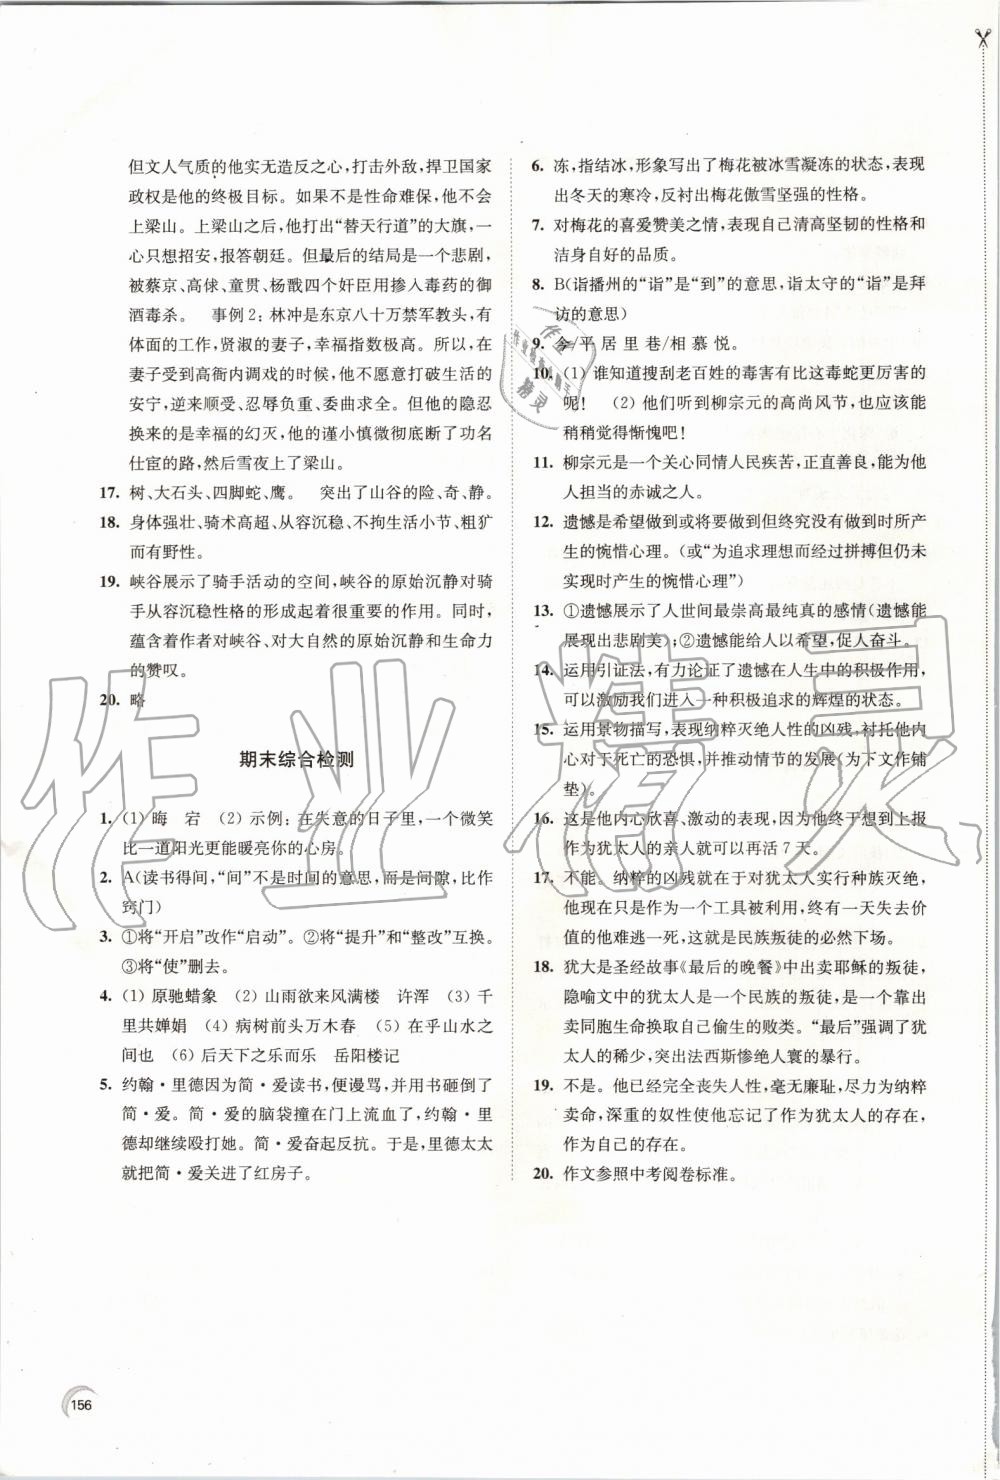 但文人气质的他实无造反之心，打击外敌，捍卫国家
政权是他的终极目标。如果不是性命难保，他不会
上梁山。上梁山之后，他打出“替天行道”的大旗，一
心只想招安，报答朝廷。然而最后的结局是一个悲剧，
被蔡京、高俅、童贯、杨戬四个奸臣用掺入毒药的御
酒毒杀。　事例2：林冲是东京八十万禁军教头，有
体面的工作，贤淑的妻子，幸福指数极高。所以，在
妻子受到高衙内调戏的时候，他不愿意打破生活的
安宁，逆来顺受、忍辱负重、委曲求全。但他的隐忍
换来的是幸福的幻灭，他的谨小慎微彻底断了功名
仕宦的路，然后雪夜上了梁山。
17. 树、大石头、四脚蛇、鹰。　突出了山谷的险、奇、静。
18. 身体强壮、骑术高超、从容沉稳、不拘生活小节、粗犷
而有野性。
19. 峡谷展示了骑手活动的空间，峡谷的原始沉静对骑
手从容沉稳性格的形成起着很重要的作用。同时，
蕴含着作者对峡谷、对大自然的原始沉静和生命力
的赞叹。
20. 略
期末综合检测
1. （1）晦　宕　（2）示例：在失意的日子里，一个微笑
比一道阳光更能暖亮你的心房。
2. A（读书得间，“间”不是时间的意思，而是间隙，比作
窍门）
3. ①将“开启”改作“启动”。②将“提升”和“整改”互换。
③将“使”删去。
4. （1）原驰蜡象　（2）山雨欲来风满楼　许浑　（3）千
里共婵娟　（4）病树前头万木春　（5）在乎山水之
间也　（6）后天下之乐而乐　岳阳楼记
5. 约翰·里德因为简·爱读书，便谩骂，并用书砸倒了
简·爱。简·爱的脑袋撞在门上流血了，约翰·里
德却继续殴打她。简·爱奋起反抗。于是，里德太太
就把简·爱关进了红房子。
6. 冻，指结冰，形象写出了梅花被冰雪凝冻的状态，表现
出冬天的寒冷，反衬出梅花傲雪坚强的性格。
7. 对梅花的喜爱赞美之情，表现自己清高坚韧的性格和
洁身自好的品质。
8. B（诣播州的“诣”是“到”的意思，诣太守的“诣”是拜
访的意思）
9. 今/平居里巷/相慕悦。
10. （1）谁知道搜刮老百姓的毒害有比这毒蛇更厉害的
呢！　（2）他们听到柳宗元的高尚风节，也应该能
稍稍觉得惭愧吧！
11. 柳宗元是一个关心同情人民疾苦，正直善良，能为他
人担当的赤诚之人。
12. 遗憾是希望做到或将要做到但终究没有做到时所产
生的惋惜心理。（或“为追求理想而经过拼搏但仍未
实现时产生的惋惜心理”）
13. ①遗憾展示了人世间最崇高最纯真的感情（遗憾能
展现出悲剧美）；②遗憾能给人以希望，促人奋斗。
14. 运用引证法，有力论证了遗憾在人生中的积极作用，
可以激励我们进入一种积极追求的辉煌的状态。
15. 运用景物描写，表现纳粹灭绝人性的凶残，衬托他内
心对于死亡的恐惧，并推动情节的发展（为下文作铺
垫）。
16. 这是他内心欣喜、激动的表现，因为他终于想到上报
作为犹太人的亲人就可以再活7天。
17. 不能。纳粹的凶残就在于要对犹太人实行种族灭绝，
他现在只是作为一个工具被利用，终有一天失去价
值的他难逃一死，这就是民族叛徒的必然下场。
18. 犹大是圣经故事《最后的晚餐》中出卖耶稣的叛徒，
隐喻文中的犹太人是一个民族的叛徒，是一个靠出
卖同胞生命换取自己偷生的败类。“最后”强调了犹
太人的稀少，突出法西斯惨绝人寰的暴行。
19. 不是。他已经完全丧失人性，毫无廉耻，尽力为纳粹
卖命，深重的奴性使他忘记了作为犹太人的存在，
作为自己的存在。
20. 作文参照中考阅卷标准。
156
作业精灵